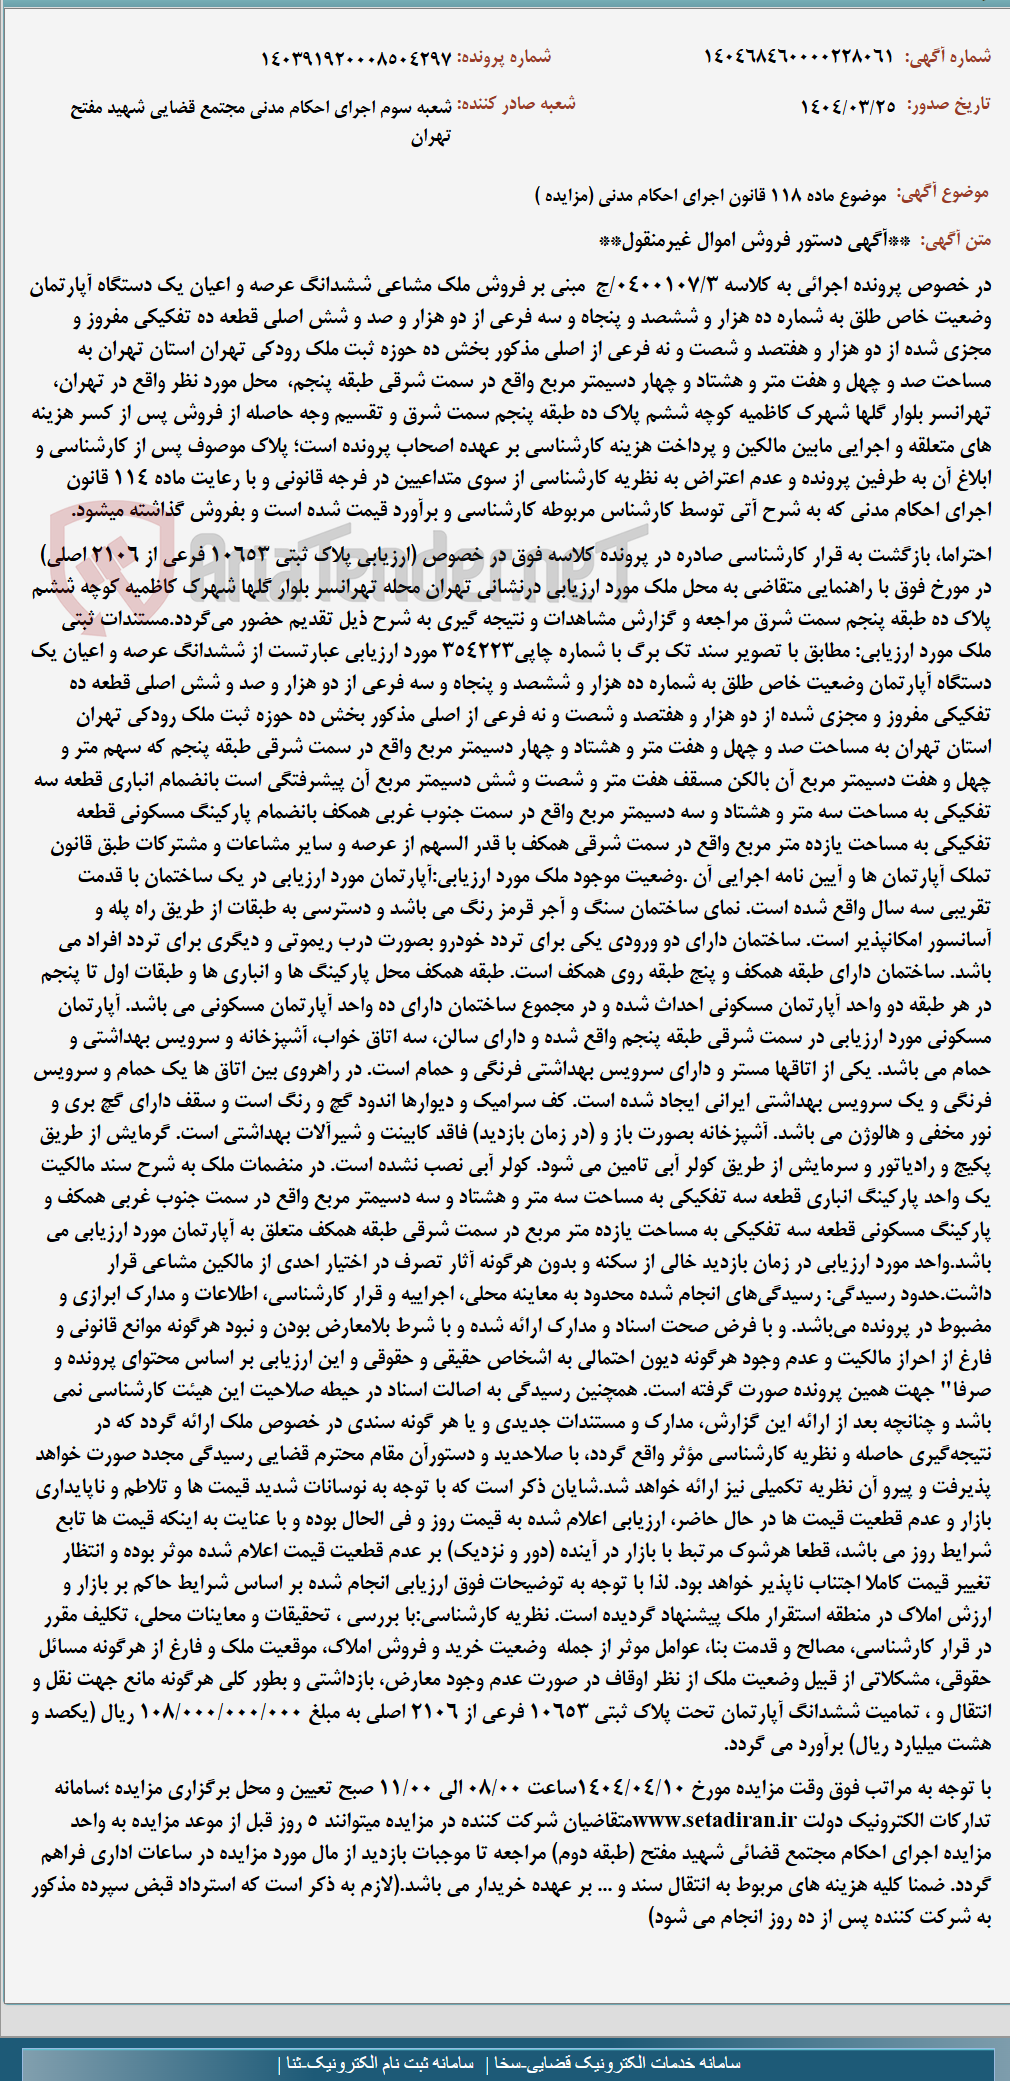 شماره آگهی: ۱۴۰۴۶۸۴۶۰۰۰۰۲۲۸۰۶۱ شماره پرونده: ۱۴۰۳۹۱۹۲۰۰۰۸۵۰۴۲۹۷
تاریخ صدور: ۱۴۰۴/۰۳/۲۵ شعبه صادر کننده: شعبه سوم اجرای احکام مدنی مجتمع قضایی شهید مفتح
تهران
موضوع آگهی: موضوع ماده ۱۱۸ قانون اجرای احکام مدنی (مزایده )
متن آگهی: **آگهی دستور فروش اموال غیرمنقول**
در خصوص پرونده اجرائی به کلاسه ۰۴۰۰۱۰۷/۳/ج مبنی بر فروش ملک مشاعی ششدانگ عرصه و اعیان یک دستگاه آپارتمان
وضعیت خاص طلق به شماره ده هزار و ششصد و پنجاه و سه فرعی از دو هزار و صد و شش اصلی قطعه ده تفکیکی مفروز و
مجزی شده از دو هزار و هفتصد و شصت و نه فرعی از اصلی مذکور بخش ده حوزه ثبت ملک رودکی تهران استان تهران به
مساحت صد و چهل و هفت متر و هشتاد و چهار دسیمتر مربع واقع در سمت شرقی طبقه پنجم، محل مورد نظر واقع در تهران،
تهرانسر بلوار گلها شهرک کاظمیه کوچه ششم پلاک ده طبقه پنجم سمت شرق و تقسیم وجه حاصله از فروش پس از کسر هزینه
های متعلقه و اجرایی مابین مالکین و پرداخت هزینه کارشناسی بر عهده اصحاب پرونده است؛ پلاک موصوف پس از کارشناسی و
ابلاغ آن به طرفین پرونده و عدم اعتراض به نظریه کارشناسی از سوی متداعیین در فرجه قانونی و با رعایت ماده ۱۱۴ قانون
اجرای احکام مدنی که به شرح آتی توسط کارشناس مربوطه کارشناسی و برآورد قیمت شده است و بفروش گذاشته میشود.
AriaTender.neT
احتراما، بازگشت به قرار کارشناسی صادره در پرونده کلاسه فوق در خصوص (ارزیابی پلاک ثبتی ۱۰۶۵۳ فرعی از ۲۱۰۶ اصلی)
در مورخ فوق با راهنمایی متقاضی به محل ملک مورد ارزیابی درنشانی تهران محله تهرانسر بلوار گلها شهرک کاظمیه کوچه ششم
پلاک ده طبقه پنجم سمت شرق مراجعه و گزارش مشاهدات و نتیجه گیری به شرح ذیل تقدیم حضور می‌گردد.مستندات ثبتی
ملک مورد ارزیابی: مطابق با تصویر سند تک برگ با شماره چاپی۳۵۴۲۲۳ مورد ارزیابی عبارتست از ششدانگ عرصه و اعیان یک
دستگاه آپارتمان وضعیت خاص طلق به شماره ده هزار و ششصد و پنجاه و سه فرعی از دو هزار و صد و شش اصلی قطعه ده
تفکیکی مفروز و مجزی شده از دو هزار و هفتصد و شصت و نه فرعی از اصلی مذکور بخش ده حوزه ثبت ملک رودکی تهران
استان تهران به مساحت صد و چهل و هفت متر و هشتاد و چهار دسیمتر مربع واقع در سمت شرقی طبقه پنجم که سهم متر و
چهل و هفت دسیمتر مربع آن بالکن مسقف هفت متر و شصت و شش دسیمتر مربع آن پیشرفتگی است بانضمام انباری قطعه سه
تفکیکی به مساحت سه متر و هشتاد و سه دسیمتر مربع واقع در سمت جنوب غربی همکف بانضمام پارکینگ مسکونی قطعه
تفکیکی به مساحت یازده متر مربع واقع در سمت شرقی همکف با قدر السهم از عرصه و سایر مشاعات و مشترکات طبق قانون
تملک آپارتمان ها و آیین نامه اجرایی آن .وضعیت موجود ملک مورد ارزیابی:آپارتمان مورد ارزیابی در یک ساختمان با قدمت
تقریبی سه سال واقع شده است. نمای ساختمان سنگ و آجر قرمز رنگ می باشد و دسترسی به طبقات از طریق راه پله و
آسانسور امکانپذیر است. ساختمان دارای دو ورودی یکی برای تردد خودرو بصورت درب ریموتی و دیگری برای تردد افراد می
باشد. ساختمان دارای طبقه همکف و پنج طبقه روی همکف است. طبقه همکف محل پارکینگ ها و انباری ها و طبقات اول تا پنجم
در هر طبقه دو واحد آپارتمان مسکونی احداث شده و در مجموع ساختمان دارای ده واحد آپارتمان مسکونی می باشد. آپارتمان
مسکونی مورد ارزیابی در سمت شرقی طبقه پنجم واقع شده و دارای سالن، سه اتاق خواب، آشپزخانه و سرویس بهداشتی و
حمام می باشد. یکی از اتاقها مستر و دارای سرویس بهداشتی فرنگی و حمام است. در راهروی بین اتاق ها یک حمام و سرویس
فرنگی و یک سرویس بهداشتی ایرانی ایجاد شده است. کف سرامیک و دیوارها اندود گچ و رنگ است و سقف دارای گچ بری و
نور مخفی و هالوژن می باشد. آشپزخانه بصورت باز و (در زمان بازدید) فاقد کابینت و شیرآلات بهداشتی است. گرمایش از طریق
پکیج و رادیاتور و سرمایش از طریق کولر آبی تامین می شود. کولر آبی نصب نشده است. در منضمات ملک به شرح سند مالکیت
یک واحد پارکینگ انباری قطعه سه تفکیکی به مساحت سه متر و هشتاد و سه دسیمتر مربع واقع در سمت جنوب غربی همکف و
پارکینگ مسکونی قطعه سه تفکیکی به مساحت یازده متر مربع در سمت شرقی طبقه همکف متعلق به آپارتمان مورد ارزیابی می
باشد.واحد مورد ارزیابی در زمان بازدید خالی از سکنه و بدون هرگونه آثار تصرف در اختیار احدی از مالکین مشاعی قرار
داشت.حدود رسیدگی: رسیدگی‌های انجام شده محدود به معاینه محلی، اجراییه و قرار کارشناسی، اطلاعات و مدارک ابرازی و
مضبوط در پرونده می‌باشد. و با فرض صحت اسناد و مدارک ارائه شده و با شرط بلامعارض بودن و نبود هرگونه موانع قانونی و
فارغ از احراز مالکیت و عدم وجود هرگونه دیون احتمالی به اشخاص حقیقی و حقوقی و این ارزیابی بر اساس محتوای پرونده و
صرفا" جهت همین پرونده صورت گرفته است. همچنین رسیدگی به اصالت اسناد در حیطه صلاحیت این هیئت کارشناسی نمی
باشد و چنانچه بعد از ارائه این گزارش، مدارک و مستندات جدیدی و یا هر گونه سندی در خصوص ملک ارائه گردد که در
نتیجه‌گیری حاصله و نظریه کارشناسی مؤثر واقع گردد، با صلاحدید و دستورآن مقام محترم قضایی رسیدگی مجدد صورت خواهد
پذیرفت و پیرو آن نظریه تکمیلی نیز ارائه خواهد شد.شایان ذکر است که با توجه به نوسانات شدید قیمت ها و تلاطم و ناپایداری
بازار و عدم قطعیت قیمت ها در حال حاضر، ارزیابی اعلام شده به قیمت روز و فی الحال بوده و با عنایت به اینکه قیمت ها تابع
شرایط روز می باشد، قطعا هرشوک مرتبط با بازار در آینده (دور و نزدیک) بر عدم قطعیت قیمت اعلام شده موثر بوده و انتظار
تغییر قیمت کاملا اجتناب ناپذیر خواهد بود. لذا با توجه به توضیحات فوق ارزیابی انجام شده بر اساس شرایط حاکم بر بازار و
ارزش املاک در منطقه استقرار ملک پیشنهاد گردیده است. نظریه کارشناسی:با بررسی ، تحقیقات و معاینات محلی، تکلیف مقرر
در قرار کارشناسی، مصالح و قدمت بنا، عوامل موثر از جمله وضعیت خرید و فروش املاک، موقعیت ملک و فارغ از هرگونه مسائل
حقوقی، مشکلاتی از قبیل وضعیت ملک از نظر اوقاف در صورت عدم وجود معارض، بازداشتی و بطور کلی هرگونه مانع جهت نقل و
انتقال و ، تمامیت ششدانگ آپارتمان تحت پلاک ثبتی ۱۰۶۵۳ فرعی از ۲۱۰۶ اصلی به مبلغ ۱۰۸/۰۰۰/۰۰۰/۰۰۰ ریال (یکصد و
هشت میلیارد ریال) برآورد می گردد.
با توجه به مراتب فوق وقت مزایده مورخ ۱۴۰۴/۰۴/۱۰ساعت ۰۸/۰۰ الی ۱۱/۰۰ صبح تعیین و محل برگزاری مزایده ؛سامانه
تدارکات الکترونیک دولت www.setadiran.irمتقاضیان شرکت کننده در مزایده میتوانند ۵ روز قبل از موعد مزایده به واحد
مزایده اجرای احکام مجتمع قضائی شهید مفتح (طبقه دوم) مراجعه تا موجبات بازدید از مال مورد مزایده در ساعات اداری فراهم
گردد. ضمنا کلیه هزینه های مربوط به انتقال سند و ... بر عهده خریدار می باشد.(لازم به ذکر است که استرداد قبض سپرده مذکور
به شرکت کننده پس از ده روز انجام می شود)
سامانه خدمات الکترونیک قضایی-سخا | سامانه ثبت نام الکترونیک-ثنا |